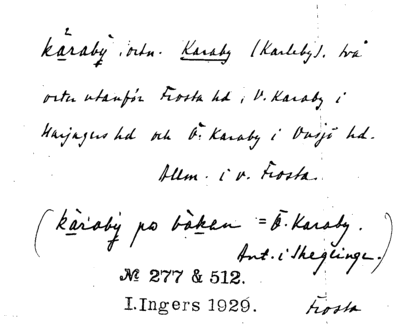 2.
kạ̈raby̆, ortn. Karaby (Karleby), två
orter utanför Frosta hd, V. Karaby i
Harjagers hd och Ö. Karaby i Onsjö hd.
Allm. i v. Frosta.
(kạ̈raby̆ po bàkan = Ö. Karaby.
Ant. i Skeglinge.)
№ 277 & 512.
I. Ingers 1929. Frosta